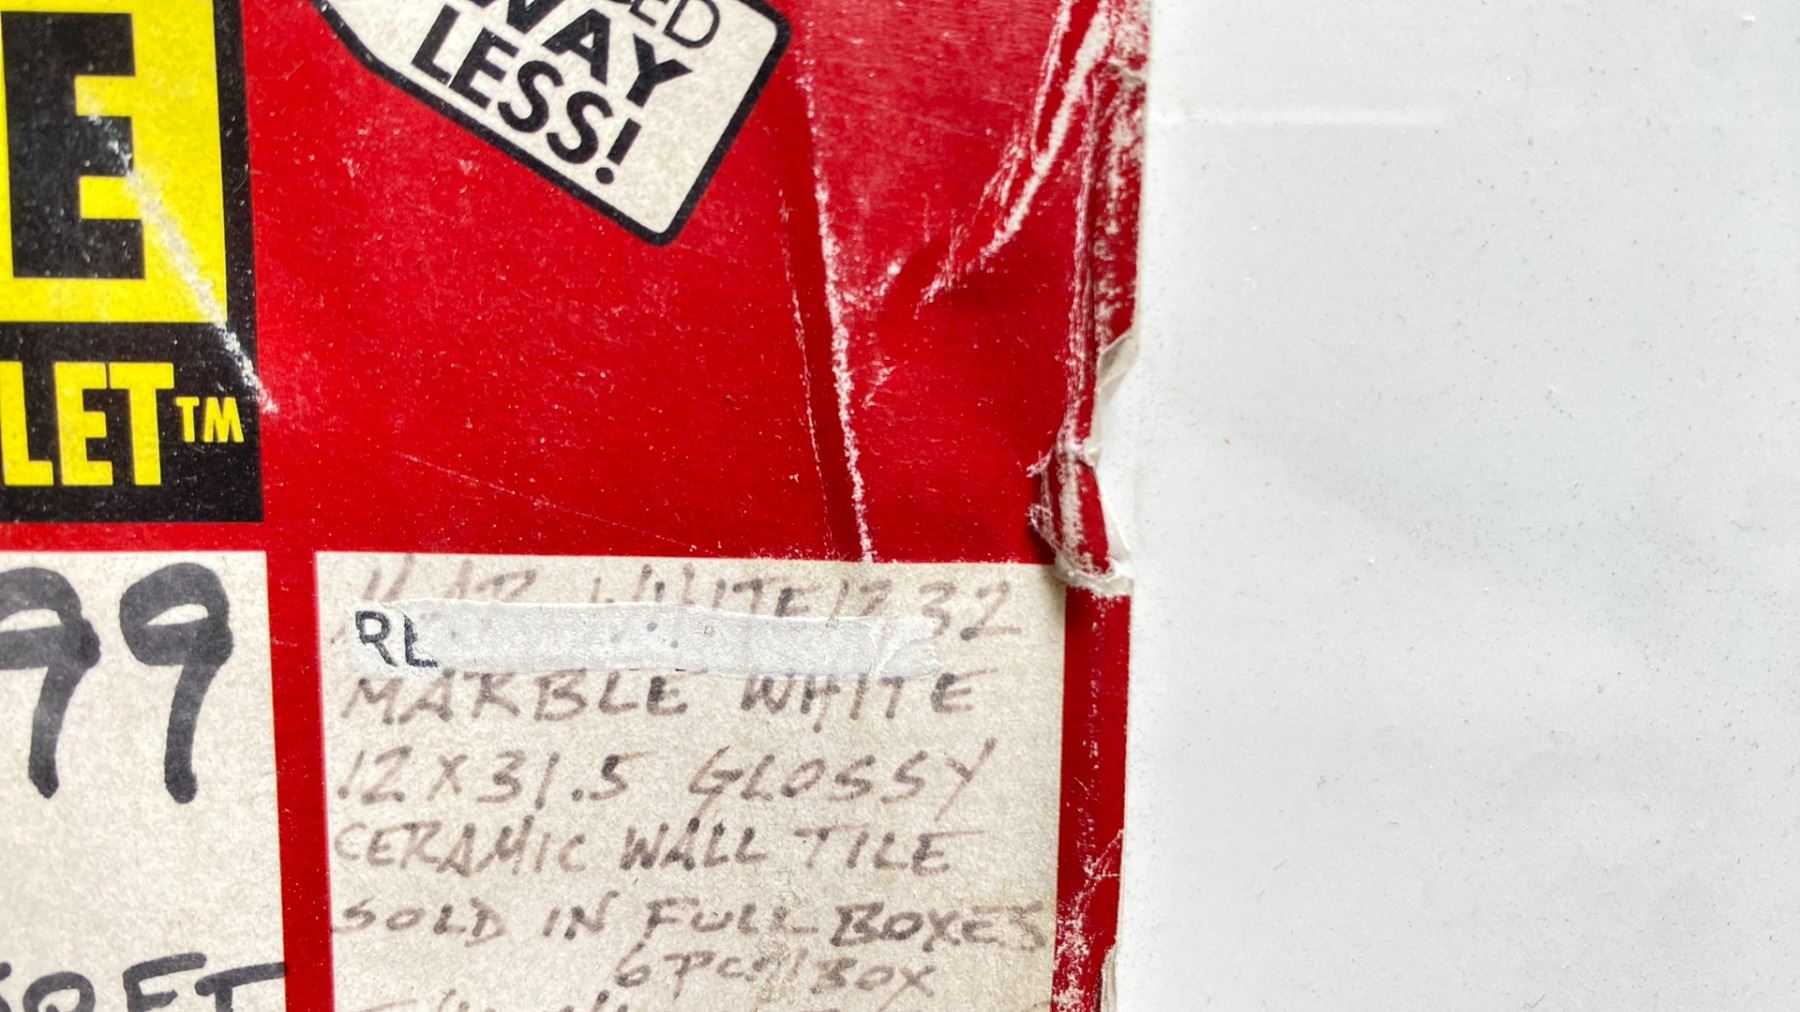 WAY
LESS!
E
LET™
99
WHITE1232
RL
MARBLE WHITE
12X31.5 GLOSSY
CERAMIC WALL TILE
SOLD IN FULL BOXES
6 PCS/BOX